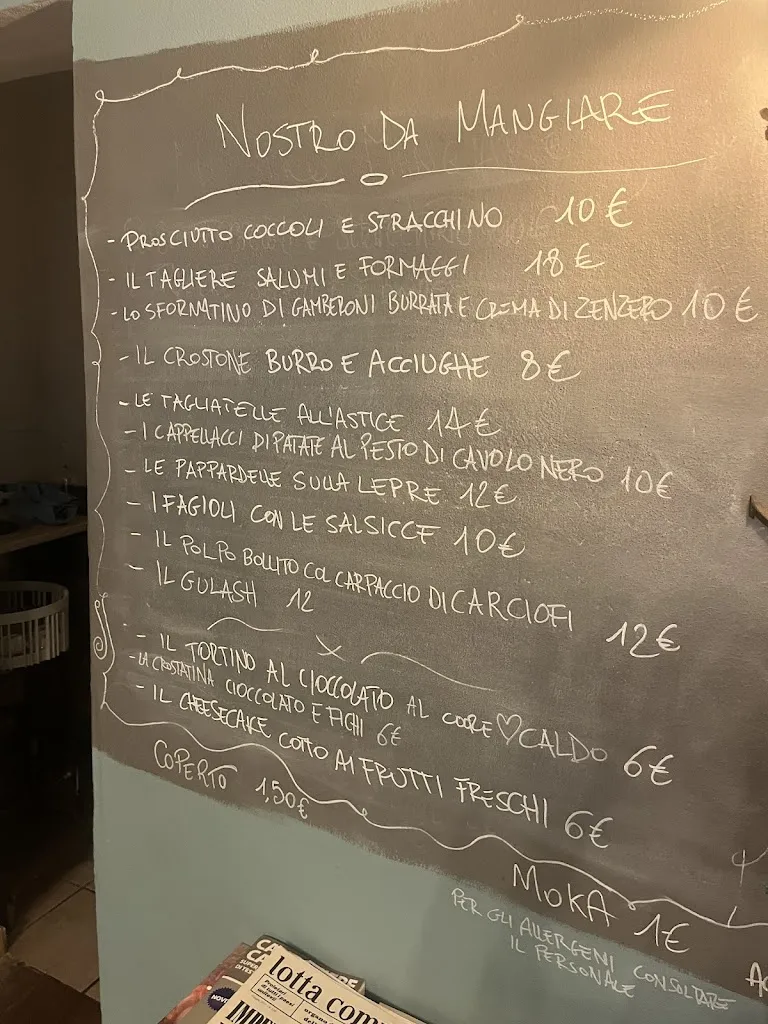 NOSTRO DA MANGIARE
- PROSCIUTTO COCCOLI E STRACCHINO 10€
- IL TAGLIERE SALUMI E FORMAGGI 18€
- LO SFORMATINO DI GAMBERONI BURRATA E CREMA DI ZENZERO 10€
- IL CROSTONE BURRO E ACCIUGHE 8€
- LE TAGLIATELLE ALL'ASTICE 14€
- I CAPPELLACCI DI PATATE AL PESTO DI CAVOLO NERO 10€
- LE PAPPARDELLE SULLA LEPRE 12€
- I FAGIOLI CON LE SALSICCE 10€
- IL POLPO BOLLITO COL CARPACCIO DI CARCIOFI 12€
- IL GULASH 12
- IL TORTINO AL CIOCCOLATO AL CUORE ♡ CALDO 6€
- LA CROSTATINA CIOCCOLATO E FICHI 6€
- IL CHEESECAKE COTTO AI FRUTTI FRESCHI 6€
COPERTO 1,50€
MOKA 1€
PER GLI ALLERGENI CONSULTARE
IL PERSONALE
lotta com